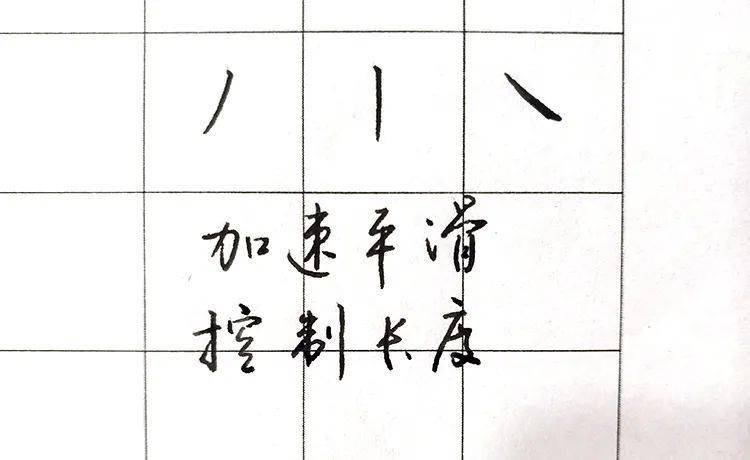 加速平滑
控制长度